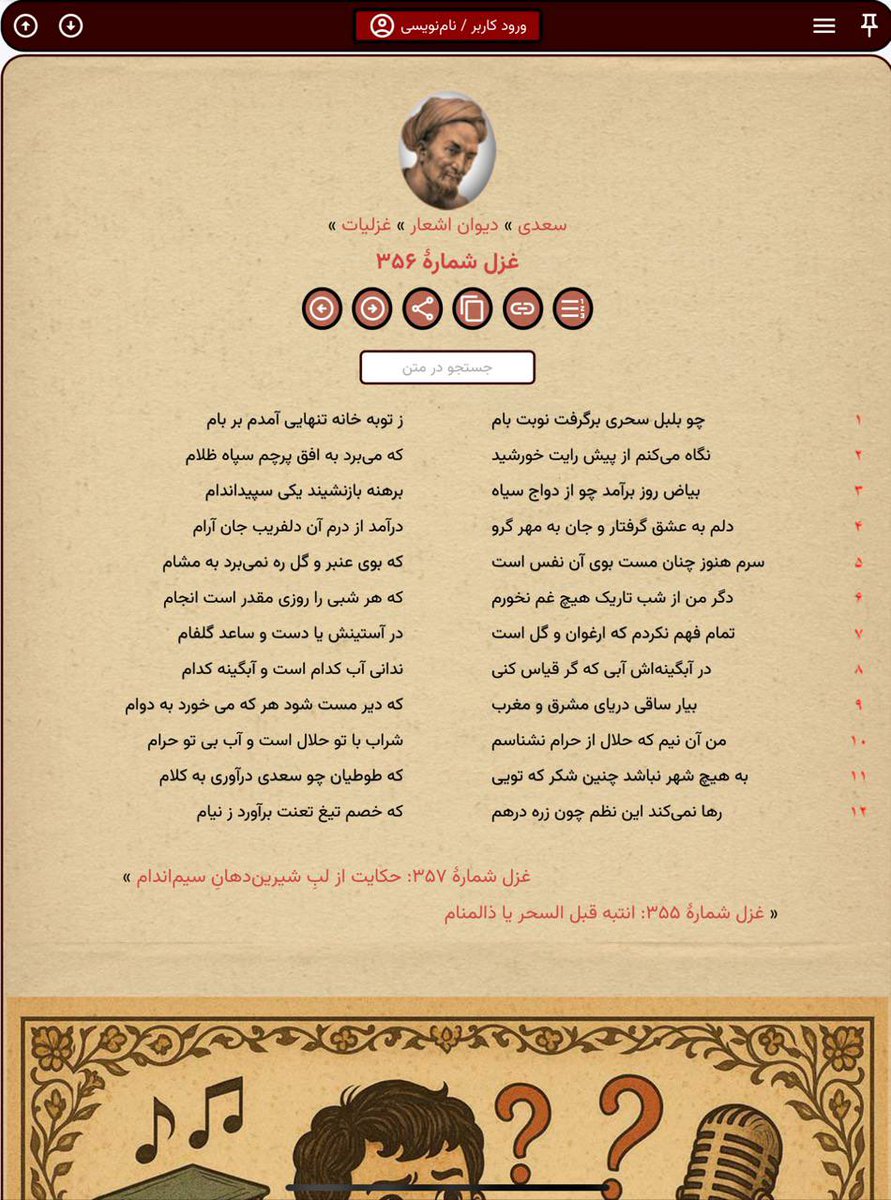 ورود کاربر / نام‌نویسی
سعدی » دیوان اشعار » غزلیات »
غزل شمارهٔ ۳۵۶
جستجو در متن
۱ چو بلبل سحری برگرفت نوبت بام ز توبه خانه تنهایی آمدم بر بام
۲ نگاه می‌کنم از پیش رایت خورشید که می‌برد به افق پرچم سپاه ظلام
۳ بیاض روز برآمد چو از دواج سیاه برهنه بازنشیند یکی سپیداندام
۴ دلم به عشق گرفتار و جان به مهر گرو درآمد از درم آن دلفریب جان آرام
۵ سرم هنوز چنان مست بوی آن نفس است که بوی عنبر و گل ره نمی‌برد به مشام
۶ دگر من از شب تاریک هیچ غم نخورم که هر شبی را روزی مقدر است انجام
۷ تمام فهم نکردم که ارغوان و گل است در آستینش یا دست و ساعد گلفام
۸ در آبگینه‌اش آبی که گر قیاس کنی ندانی آب کدام است و آبگینه کدام
۹ بیار ساقی دریای مشرق و مغرب که دیر مست شود هر که می خورد به دوام
۱۰ من آن نیم که حلال از حرام نشناسم شراب با تو حلال است و آب بی تو حرام
۱۱ به هیچ شهر نباشد چنین شکر که تویی که طوطیان چو سعدی درآوری به کلام
۱۲ رها نمی‌کند این نظم چون زره درهم که خصم تیغ تعنت برآورد ز نیام
غزل شمارهٔ ۳۵۷: حکایت از لبِ شیرین‌دهانِ سیم‌اندام »
« غزل شمارهٔ ۳۵۵: انتبه قبل السحر یا ذالمنام
? ?